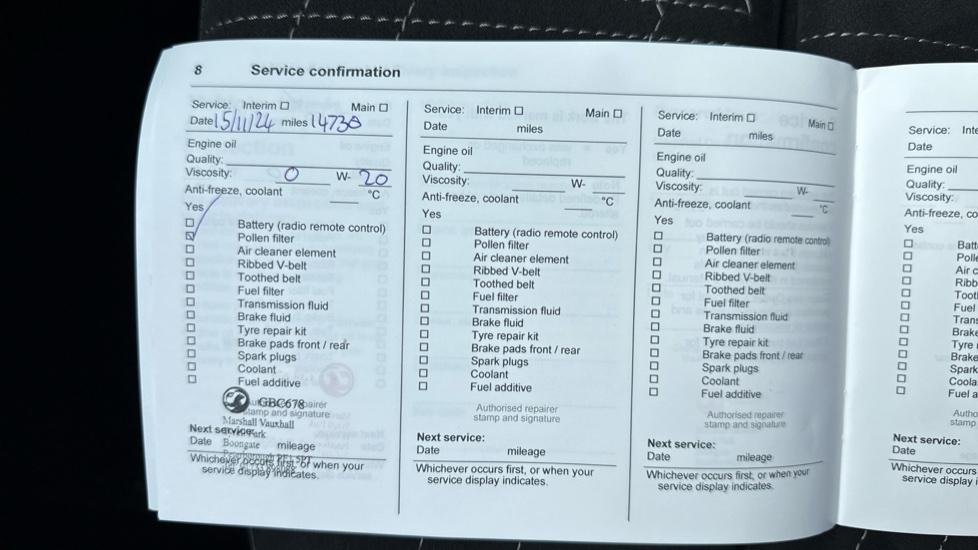 8 Service confirmation
Service: Interim ☐ Main ☐
Date 15/11/24 miles 14738
Engine oil
Quality:
Viscosity: 0 W- 20
Anti-freeze, coolant °C
Yes
☐ Battery (radio remote control)
☑ Pollen filter
☐ Air cleaner element
☐ Ribbed V-belt
☐ Toothed belt
☐ Fuel filter
☐ Transmission fluid
☐ Brake fluid
☐ Tyre repair kit
☐ Brake pads front / rear
☐ Spark plugs
☐ Coolant
☐ Fuel additive
GBC678
stamp and signature
Marshall Vauxhall
Next service:
Date Boongate mileage
Whichever occurs first, or when your
service display indicates.
Service: Interim ☐ Main ☐
Date miles
Engine oil
Quality:
Viscosity: W-
Anti-freeze, coolant °C
Yes
☐ Battery (radio remote control)
☐ Pollen filter
☐ Air cleaner element
☐ Ribbed V-belt
☐ Toothed belt
☐ Fuel filter
☐ Transmission fluid
☐ Brake fluid
☐ Tyre repair kit
☐ Brake pads front / rear
☐ Spark plugs
☐ Coolant
☐ Fuel additive
Authorised repairer
stamp and signature
Next service:
Date mileage
Whichever occurs first, or when your
service display indicates.
Service: Interim ☐ Main ☐
Date miles
Engine oil
Quality:
Viscosity: W-
Anti-freeze, coolant °C
Yes
☐ Battery (radio remote control)
☐ Pollen filter
☐ Air cleaner element
☐ Ribbed V-belt
☐ Toothed belt
☐ Fuel filter
☐ Transmission fluid
☐ Brake fluid
☐ Tyre repair kit
☐ Brake pads front / rear
☐ Spark plugs
☐ Coolant
☐ Fuel additive
Authorised repairer
stamp and signature
Next service:
Date mileage
Whichever occurs first, or when your
service display indicates.
Service: Inter
Date
Engine oil
Quality:
Viscosity:
Anti-freeze, co
Yes
☐ Batt
☐ Polle
☐ Air c
☐ Ribb
☐ Toot
☐ Fuel
☐ Tran
☐ Brake
☐ Tyre
☐ Brake
☐ Spark
☐ Coola
☐ Fuel a
Autho
stamp
Next service:
Date
Whichever occurs
service display i